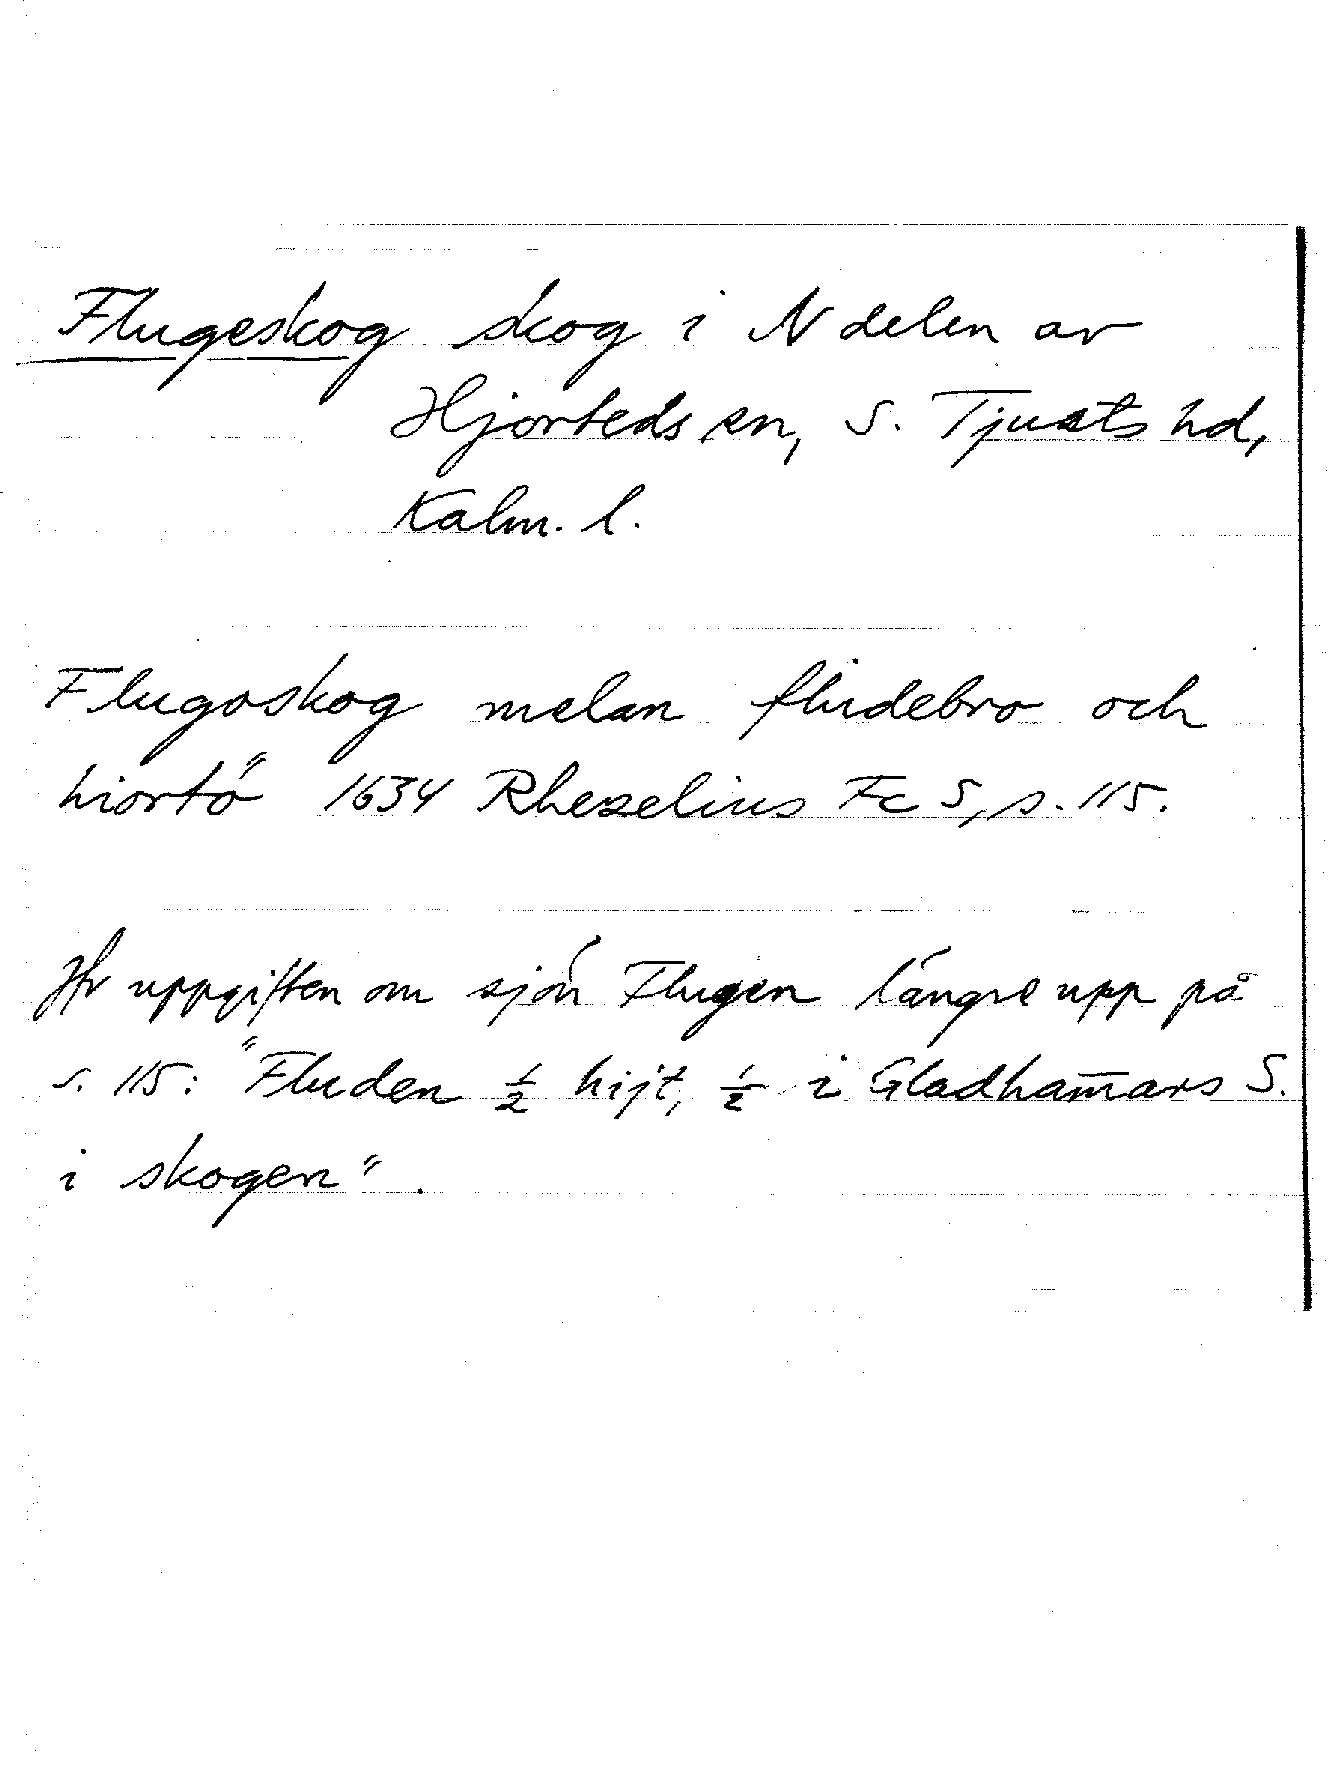 Flugeskog skog i N delen av
Hjorteds sn, S. Tjusts hd,
Kalm. l.
Flugoskog melan fludebro och
hiortö 1634 Rhezelius Fc 5, s. 115.
Jfr uppgiften om sjön Flugen längre upp på
s. 115: "Fluden ½ hijt, ½ i Gladham̄ars S.
i skogen".